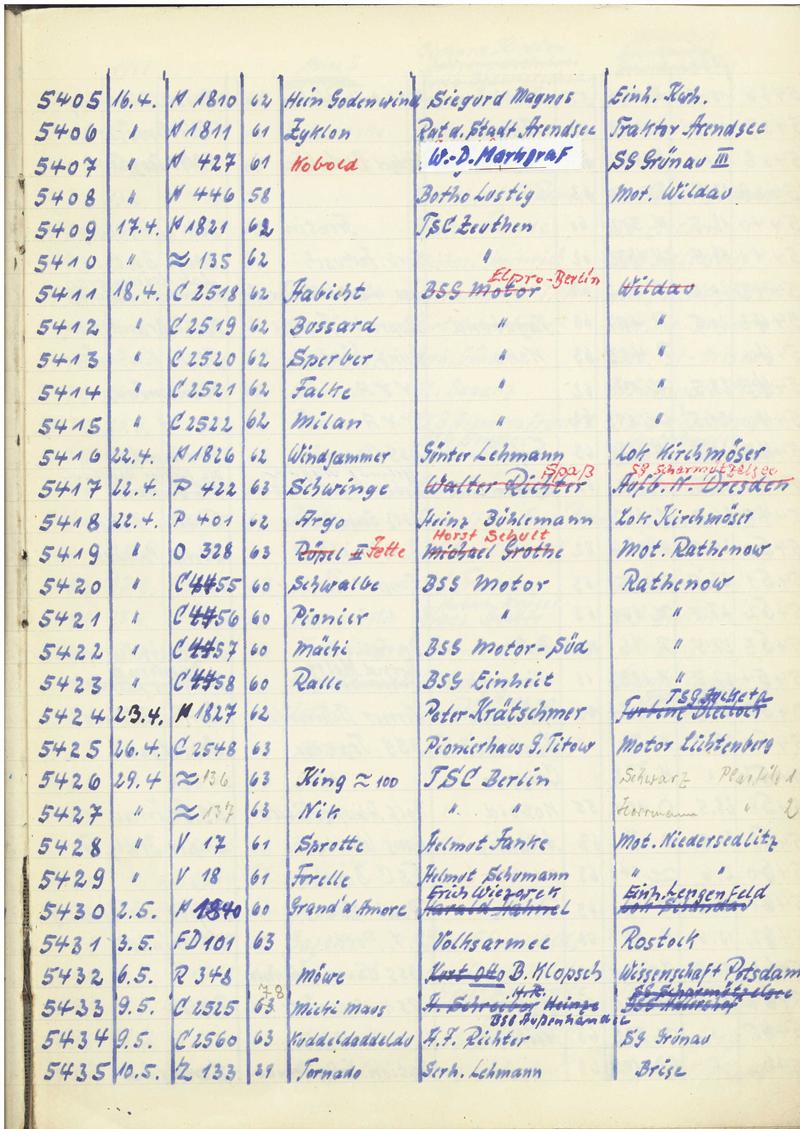 5405 16.4. H 1810 62 Hein Godenwind Siegurd Magnus Einh. Kwh.
5406 " H 1811 61 Zyklon Rat d. Stadt Arendsee Traktor Arendsee
5407 " H 427 61 Kobold W.-D. Markgraf SG Grünau III
5408 " H 446 58 Botho Lustig Mot. Wildau
5409 17.4. H 1821 62 TSC Zeuthen
5410 " ≈ 135 62 "
Elpro-Berlin
5411 18.4. C 2518 62 Habicht BSG Motor Wildau
5412 " C 2519 62 Bussard " "
5413 " C 2520 62 Sperber " "
5414 " C 2521 62 Falke " "
5415 " C 2522 62 Milan " "
5416 22.4. H 1826 62 Windjammer Günter Lehmann Lok Kirchmöser
Spaß SG Scharmützelsee
5417 22.4. P 422 63 Schwinge Walter Richter Aufb. N. Dresden
5418 22.4. P 401 62 Argo Heinz Bühlemann Lok Kirchmöser
Horst Schult
5419 " O 328 63 Röpel II Fette Michael Grothe Mot. Rathenow
5420 " C 4455 60 Schwalbe BSG Motor Rathenow
5421 " C 4456 60 Pionier " "
5422 " C 4457 60 Mächi BSG Motor-Süd "
5423 " C 4458 60 Ralle BSG Einheit "
5424 23.4. H 1827 62 Peter Krätschmer Turbine
5425 26.4. C 2548 63 Pionierhaus G. Titow Motor Lichtenberg
5426 29.4 ≈ 136 63 King ≈ 100 TSC Berlin Schwarz 1
5427 " ≈ 137 63 Nik " " " 2
5428 " V 17 61 Sprotte Helmut Fanke Mot. Niedersedlitz
5429 " V 18 61 Forelle Helmut Schumann " "
Erich Wiezorek Einh. Lengenfeld
5430 2.5. H 1840 60 Grand'd Amore Harald
5431 3.5. FD 101 63 Volksarmee Rostock
5432 6.5. R 348 Möwe Kurt Otto B. Klopsch Wissenschaft Potsdam
78 H.K. SG Scharmützelsee
5433 9.5. C 2525 63 Micki Maus H. Schreiber Heinze
BSG Außenhandel
5434 9.5. C 2560 63 Kuddeldaddeldu H.F. Richter SG Grünau
5435 10.5. Z 133 29 Tornado Gerh. Lehmann Brise